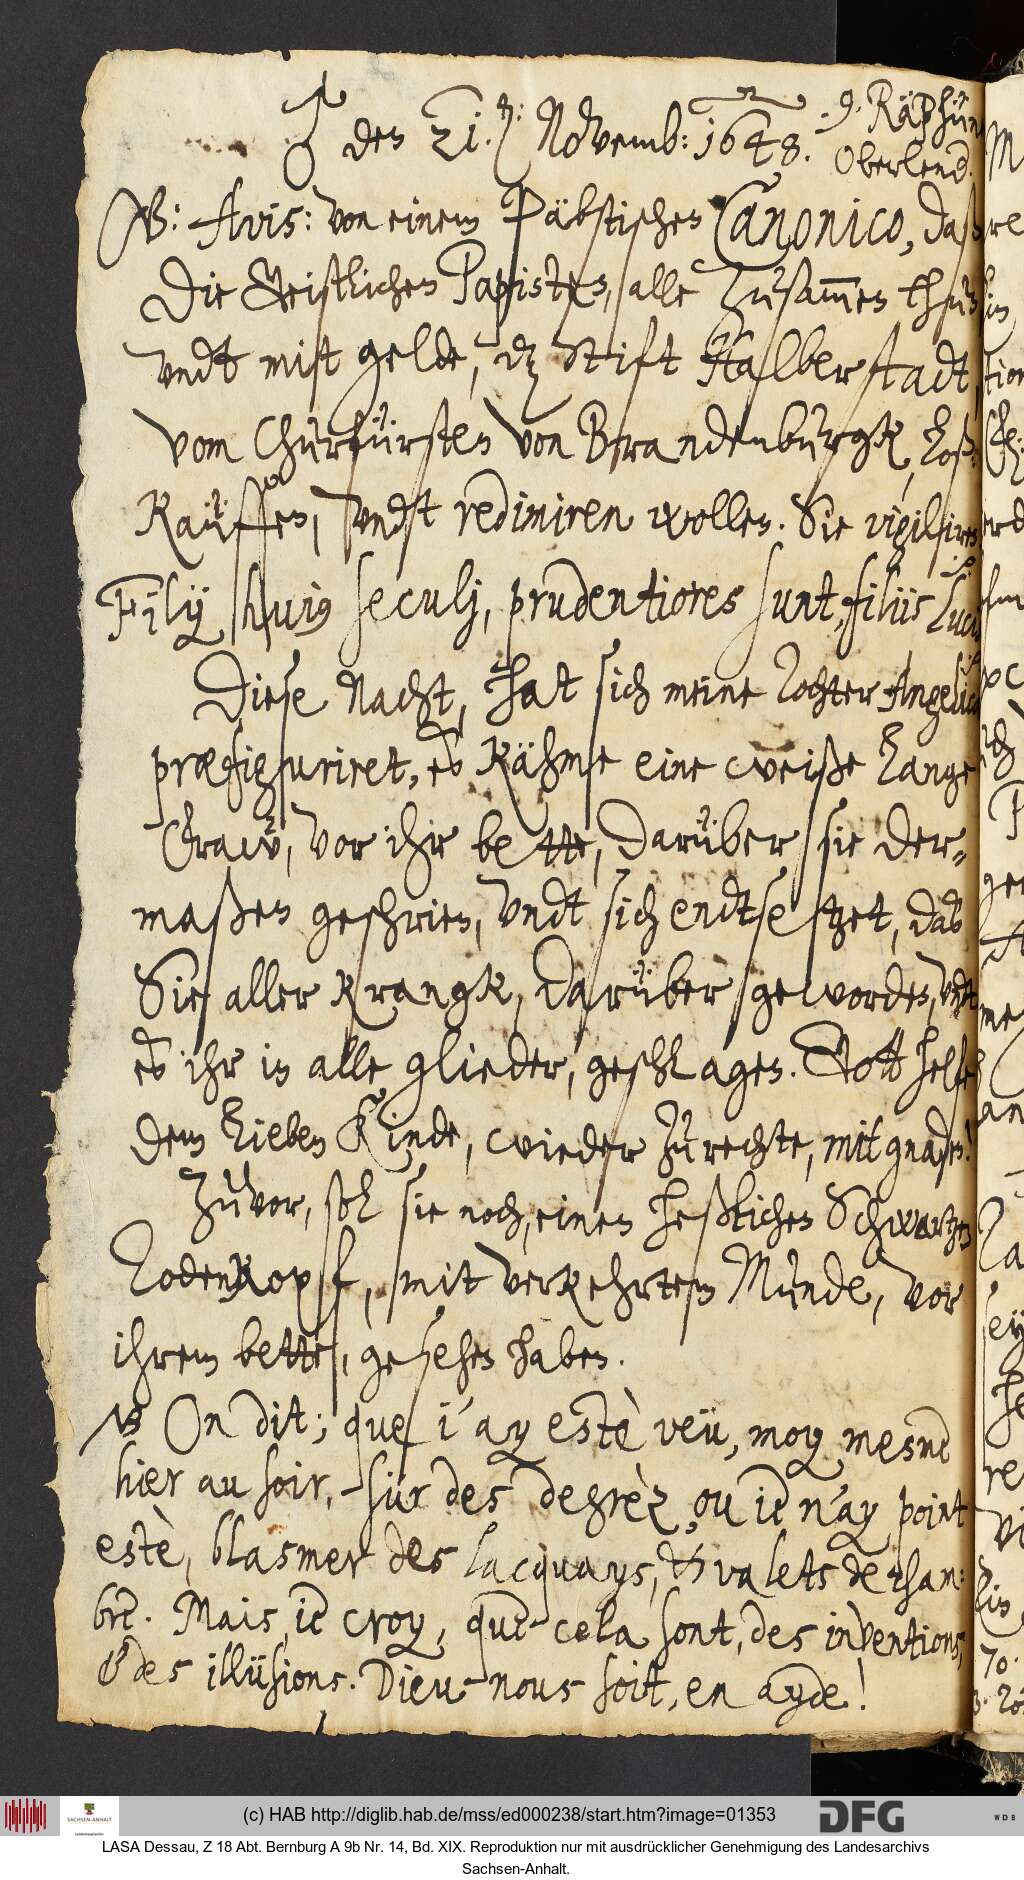 ♂ den 21. 9br: November: 1648. 9. Räphüner
Oberlend.
NB: Avis: von einem Päbstischen Canonico, daß
die Geistlichen Papisten, alle zusammen thun
undt mitt gelde, dz Stift Halberstadt,
vom Churfürsten von Brandenburgk, loß-
Kauffen, undt redimiren wollen. Sie vigiliren
Filÿ huius seculj, prudentiores sunt, filiis Lucis
Diese Nacht, hat sich meine Tochter Angelica
præfiguriret, es kähme eine weiße lange
Fraw, vor ihr bette, darüber sie der-
maßen geschrien, undt sich endtsetzet, daß
Sie aller krangk, darüber geworden, undt
es ihr in alle glieder, geschlagen. Gott helfe
dem lieben Kinde, wieder zu rechte, mit gnaden!
Zuvor, soll sie noch, einen heßlichen Schwartzen
Todenkopf, mit verkehrtem Munde, vor
ihrem bette, gesehen haben.
NB On dit; que i'ay estè veü, moy mesme
hier au soir, sür des degrèz, ou ie n'ay point
estè, blasmer des lacquays, & valets de cham-
bre. Mais ie croy, que cela sont, des inventions,
& des illüsions. Dieu nous soit, en ayde!
(c) HAB http://diglib.hab.de/mss/ed000238/start.htm?image=01353
SACHSEN-ANHALT
DFG
WDB
LASA Dessau, Z 18 Abt. Bernburg A 9b Nr. 14, Bd. XIX. Reproduktion nur mit ausdrücklicher Genehmigung des Landesarchivs
Sachsen-Anhalt.